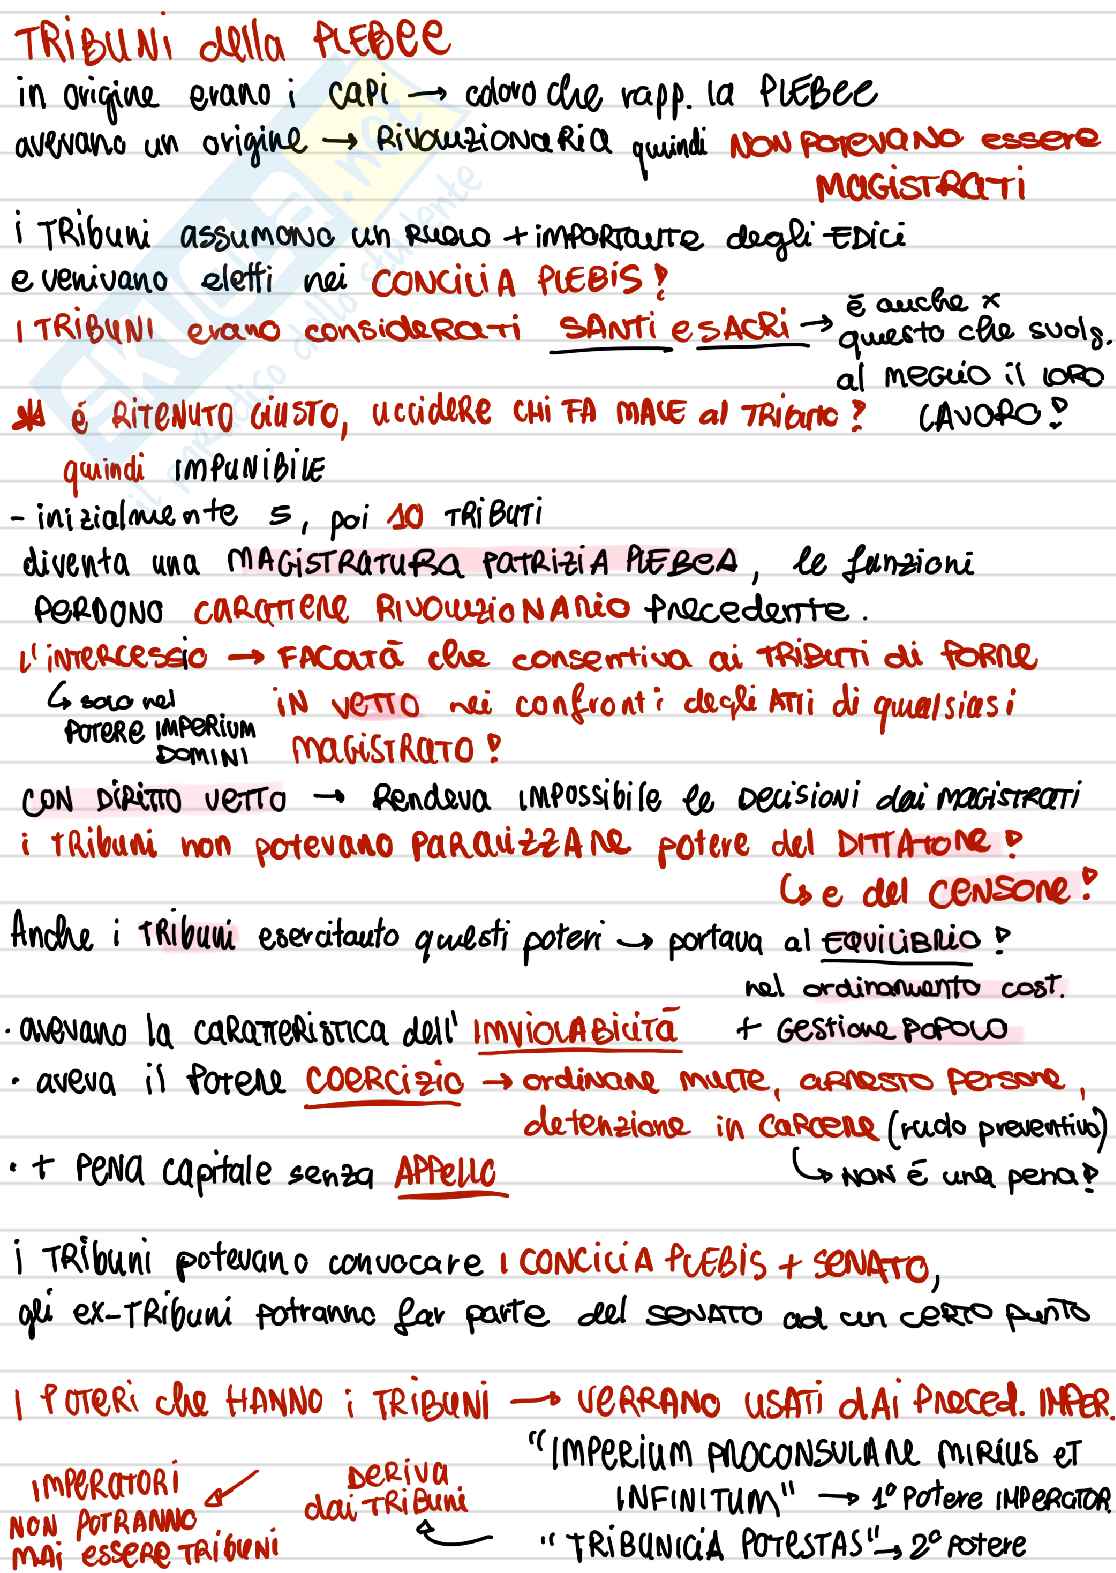 TRIBUNI della PLEBEE
in origine erano i CAPI → coloro che rapp. la PLEBEE
avevano un origine → RIVOLUZIONARIA quindi NON POTEVANO essere
MAGISTRATI
i TRIBUNI assumono un RUOLO + IMPORTANTE degli EDICI
e venivano eletti nei CONCILIA PLEBIS!
I TRIBUNI erano considerati SANTI e SACRI → è anche x
questo che svolg.
al MEGLIO il LORO
LAVORO!
* é RITENUTO GIUSTO, uccidere CHI FA MALE al TRIBUTO!
quindi IMPUNIBILE
- inizialmente 5, poi 10 TRIBUTI
diventa una MAGISTRATURA PATRIZIA PLEBEA, le funzioni
PERDONO CARATTERE RIVOLUZIONARIO precedente.
L'INTERCESSIO → FACOLTÀ che consentiva ai TRIBUTI di PORRE
IN VETTO nei confronti degli ATTI di qualsiasi
MAGISTRATO!
↳ solo nel
POTERE IMPERIUM
DOMINI
CON DIRITTO VETTO → Rendeva IMPOSSIBILE le DECISIONI dei MAGISTRATI
i TRIBUNI non potevano PARALIZZARE potere del DITTATORE!
↳ e del CENSORE!
Anche i TRIBUNI esercitauto questi poteri → portava al EQUILIBRIO!
nel ordinamento cost.
+ GESTIONE POPOLO
• avevano la CARATTERISTICA dell' IMVIOLABILITÀ
• aveva il POTERE COERCIZIO → ordinare multe, arresto persone,
detenzione in CARCERE (ruolo preventivo)
↳ NON É una pena!
• + PENA capitale senza APPELLO
i TRIBUNI potevano convocare I CONCILIA PLEBIS + SENATO,
gli ex-TRIBUNI potranno far parte del SENATO ad un certo punto
I POTERI che HANNO i TRIBUNI → VERRANO USATI dAi Preced. IMPER.
"IMPERIUM PROCONSULARE MIRIUS ET
INFINITUM" → 1° potere IMPERATOR.
"TRIBUNICIA POTESTAS" → 2° potere
DERIVA
dai TRIBUNI
IMPERATORI
NON POTRANNO
MAI ESSERE TRIBUNI
skuola.net
il paradiso dello studente